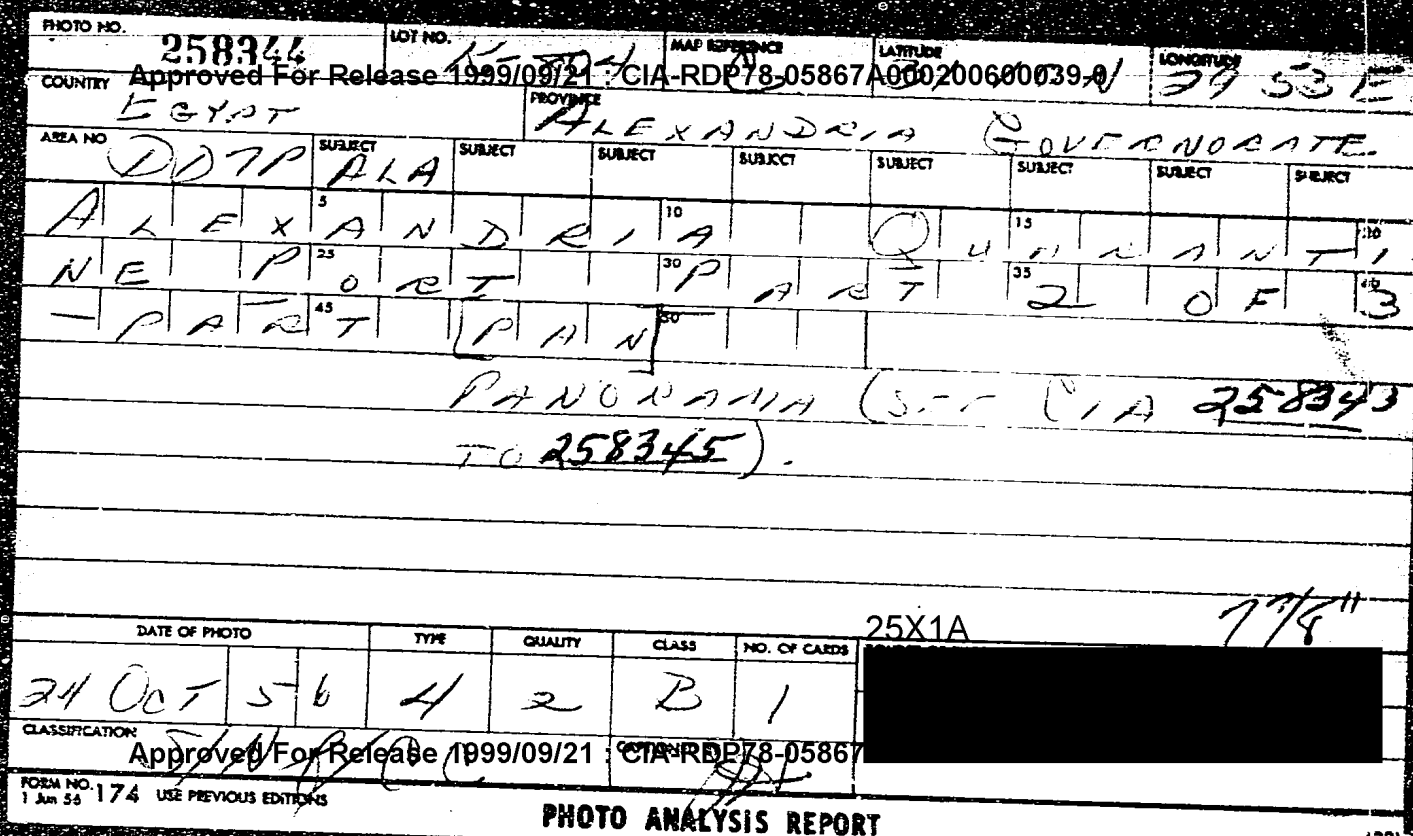 PHOTO NO. 258344 LOT NO. MAP REFERENCE LATITUDE LONGITUDE 29 53 E
Approved For Release 1999/09/21 : CIA-RDP78-05867A000200600039-0
COUNTRY EGYPT PROVINCE ALEXANDRIA GOVERNORATE.
AREA NO SUBJECT SUBJECT SUBJECT SUBJECT SUBJECT SUBJECT SUBJECT SUBJECT
DD7P ALA
5 10 15
ALEXANDRIA
25 30 35
NE PORT PART 2 OF 3
45 50
- PART [PAN]
PANORAMA (SEE CIA 258343
TO 258345).
25X1A 7 7/8"
DATE OF PHOTO TYPE QUALITY CLASS NO. OF CARDS
24 OCT 56 4 2 B 1
CLASSIFICATION
Approved For Release 1999/09/21 : CIA-RDP78-05867
FORM NO. 174 USE PREVIOUS EDITIONS
1 Jun 56
PHOTO ANALYSIS REPORT